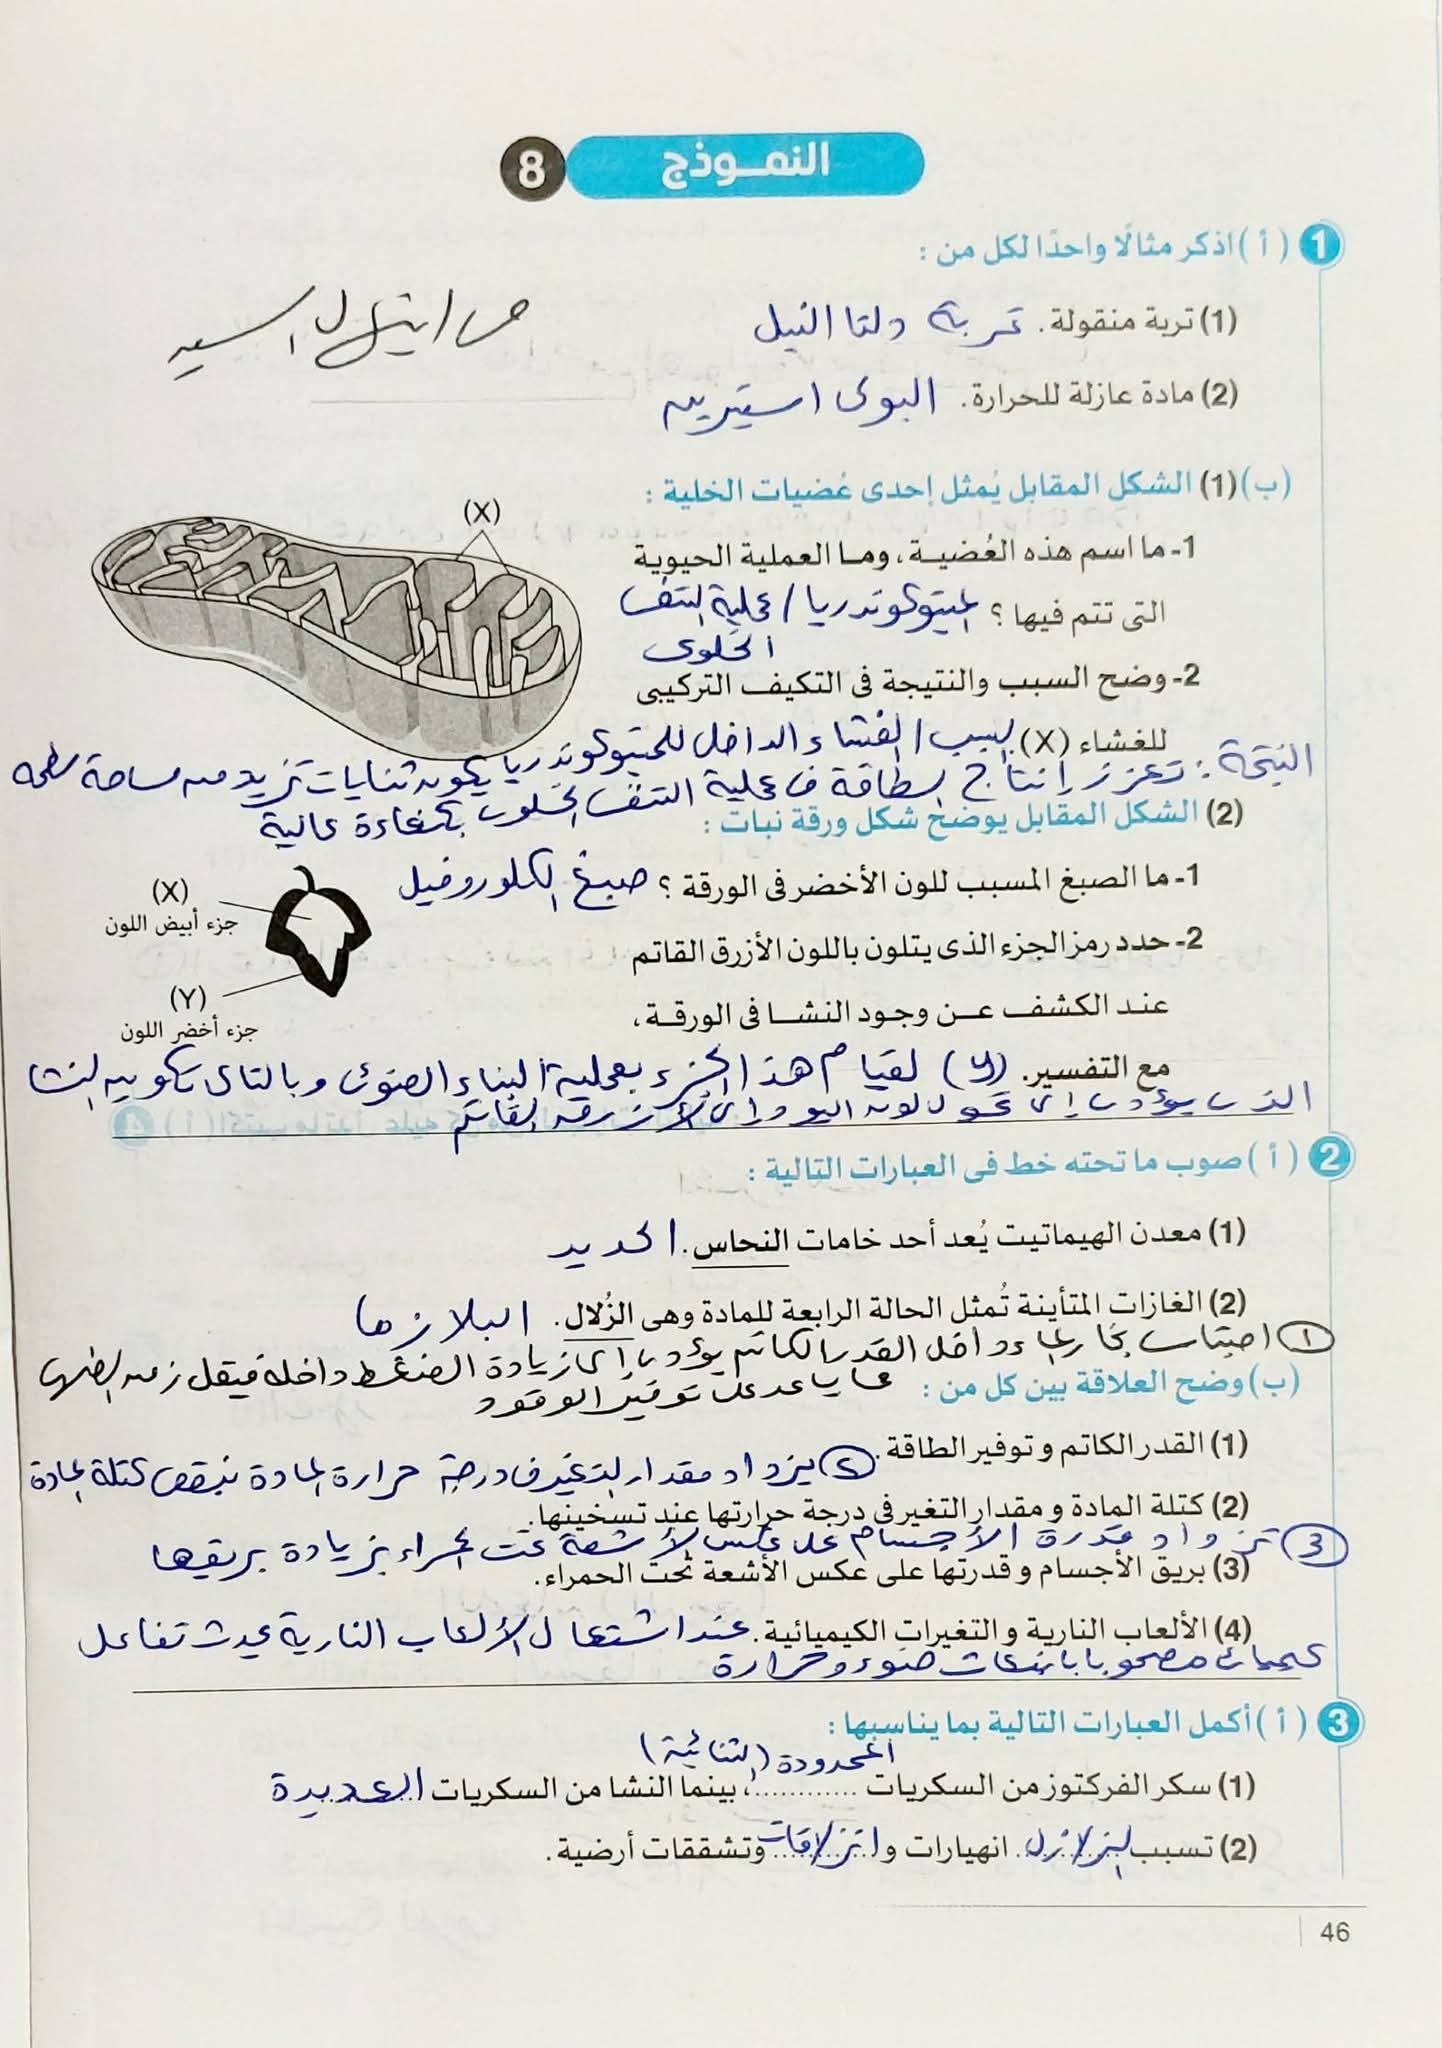 النموذج 8
1 (أ) اذكر مثالًا واحدًا لكل من :
(1) تربة منقولة. تربة دلتا النيل
(2) مادة عازلة للحرارة. البولى استيرين
(ب) (1) الشكل المقابل يُمثل إحدى عُضيات الخلية :
(X)
1- ما اسم هذه العُضية، وما العملية الحيوية
التى تتم فيها ؟ الميتوكوندريا / عملية التنفس
الخلوى
2- وضح السبب والنتيجة فى التكيف التركيبى
للغشاء (X) السبب / الغشاء الداخلى للميتوكوندريا يكون ثنايات تزيد من مساحة سطحه
النتيجة : تعزز إنتاج الطاقة فى عملية التنفس الخلوى بكفاءة عالية
(2) الشكل المقابل يوضح شكل ورقة نبات :
1- ما الصبغ المسبب للون الأخضر فى الورقة ؟ صبغ الكلوروفيل
(X)
جزء أبيض اللون
2- حدد رمز الجزء الذى يتلون باللون الأزرق القاتم
(Y)
جزء أخضر اللون
عند الكشف عن وجود النشا فى الورقة،
مع التفسير. (y) لقيام هذا الجزء بعملية البناء الضوئى وبالتالى تكوين النشا
الذى يؤدى إلى تحول لون اليود إلى الأزرق القاتم
2 (أ) صوب ما تحته خط فى العبارات التالية :
(1) معدن الهيماتيت يُعد أحد خامات النحاس. الحديد
(2) الغازات المتأينة تُمثل الحالة الرابعة للمادة وهى الزُلال. البلازما
① احتباس بخار الماء داخل القدر الكاتم يؤدى إلى زيادة الضغط داخله فيقل زمن الطهى
مما يساعد على توفير الوقود
(ب) وضح العلاقة بين كل من :
(1) القدر الكاتم وتوفير الطاقة.
② يزداد مقدار التغير فى درجة حرارة المادة بنقص كتلة المادة
(2) كتلة المادة و مقدار التغير فى درجة حرارتها عند تسخينها.
③ تزداد قدرة الأجسام على عكس الأشعة تحت الحمراء بزيادة بريقها
(3) بريق الأجسام و قدرتها على عكس الأشعة تحت الحمراء.
(4) الألعاب النارية و التغيرات الكيميائية. عند اشتعال الألعاب النارية يحدث تفاعل
كيميائى مصحوبا بانبعاث ضوء وحرارة
3 (أ) أكمل العبارات التالية بما يناسبها :
المحدودة (الثنائية)
(1) سكر الفركتوز من السكريات ............، بينما النشا من السكريات العديدة
(2) تسبب الزلازل انهيارات و انزلاقات وتشققات أرضية.
46